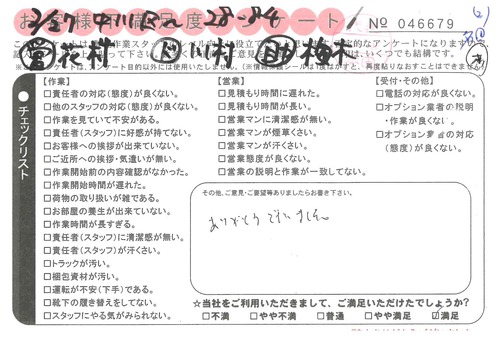 お客様満足度アンケート
No 046679
3/27 中川区〜 28-24
営 花村 ド 川村 助 梅木
チェックリスト
【作業】
□責任者の対応(態度)が良くない。
□他のスタッフの対応(態度)が良くない。
□作業を見ていて不安がある。
□責任者(スタッフ)に好感が持てない。
□お客様への挨拶が出来ていない。
□ご近所への挨拶・気遣いが無い。
□作業開始前の内容確認がなかった。
□作業開始時間が遅れた。
□荷物の取り扱いが雑である。
□お部屋の養生が出来ていない。
□作業時間が長すぎる。
□責任者(スタッフ)に清潔感が無い。
□責任者(スタッフ)が汗くさい。
□トラックが汚い。
□梱包資材が汚い。
□運転が不安(下手)である。
□靴下の履き替えをしてない。
□スタッフにやる気がみられない。
【営業】
□見積もり時間に遅れた。
□見積もり時間が長い。
□営業マンに清潔感が無い。
□営業マンが煙草くさい。
□営業マンが汗くさい。
□営業態度が良くない。
□営業の説明と作業が一致してない。
【受付・その他】
□電話の対応が良くない。
□オプション業者の説明・作業が良くない。
□オプション業者の対応(態度)が良くない。
その他、ご意見・ご要望等ありましたらお書き下さい。
ありがとうございました。
☆当社をご利用いただきまして、ご満足いただけたでしょうか?
□不満 □やや不満 □普通 □やや満足 ☑満足